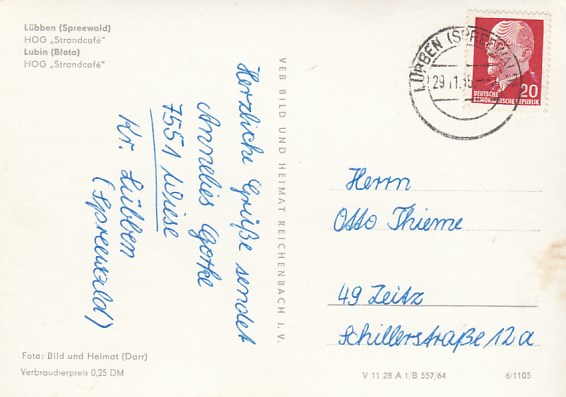 Lübben (Spreewald)
HOG „Strandcafé"
Lubin (Błota)
HOG „Strandcafé"
Herzliche Grüße sendet
Annelies Gorke
7551 Wiese
Kr. Lübben
(Spreewald)
Foto: Bild und Heimat (Darr)
Verbraucherpreis 0,25 DM
VEB BILD UND HEIMAT REICHENBACH I. V.
LÜBBEN (SPREEWALD)
20
DEUTSCHE
DEMOKRATISCHE REPUBLIK
Herrn
Otto Thieme
49 Zeitz
Schillerstraße 12a
V 11 28 A 1/B 557/64
6/1103